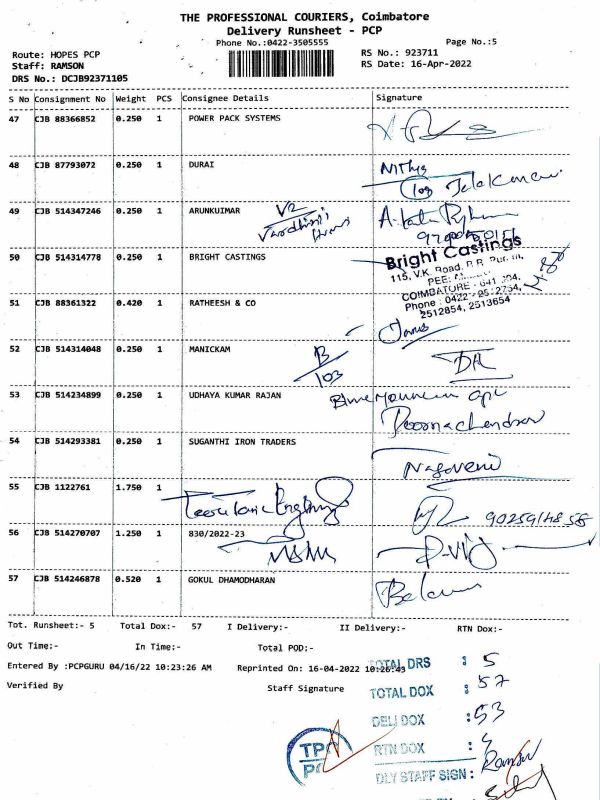 THE PROFESSIONAL COURIERS, Coimbatore
Delivery Runsheet - PCP
Phone No.:0422-3505555
Page No.:5
Route: HOPES PCP
RS No.: 923711
Staff: RAMSON
RS Date: 16-Apr-2022
DRS No.: DCJB92371105
S No Consignment No Weight PCS Consignee Details Signature
47 CJB 88366852 0.250 1 POWER PACK SYSTEMS
48 CJB 87793072 0.250 1 DURAI Nithya
108
49 CJB 514347246 0.250 1 ARUNKUIMAR V2
50 CJB 514314778 0.250 1 BRIGHT CASTINGS Bright Castings
115, V.K. Road,
COIMBATORE - 641 004.
Phone : 0422
2512854, 2513654
51 CJB 88361322 0.420 1 RATHEESH & CO
52 CJB 514314048 0.250 1 MANICKAM B
103
53 CJB 514234899 0.250 1 UDHAYA KUMAR RAJAN
Poornachandran
54 CJB 514293381 0.250 1 SUGANTHI IRON TRADERS
Nagaveni
55 CJB 1122761 1.750 1
9025914858
56 CJB 514270707 1.250 1 830/2022-23
57 CJB 514246878 0.520 1 GOKUL DHAMODHARAN
Tot. Runsheet:- 5 Total Dox:- 57 I Delivery:- II Delivery:- RTN Dox:-
Out Time:- In Time:- Total POD:-
Entered By :PCPGURU 04/16/22 10:23:26 AM Reprinted On: 16-04-2022 10:26:43
Verified By Staff Signature
TOTAL DRS : 5
TOTAL DOX : 57
DELI DOX : 53
RTN DOX : 4
DLY STAFF SIGN : Ramson
TPC